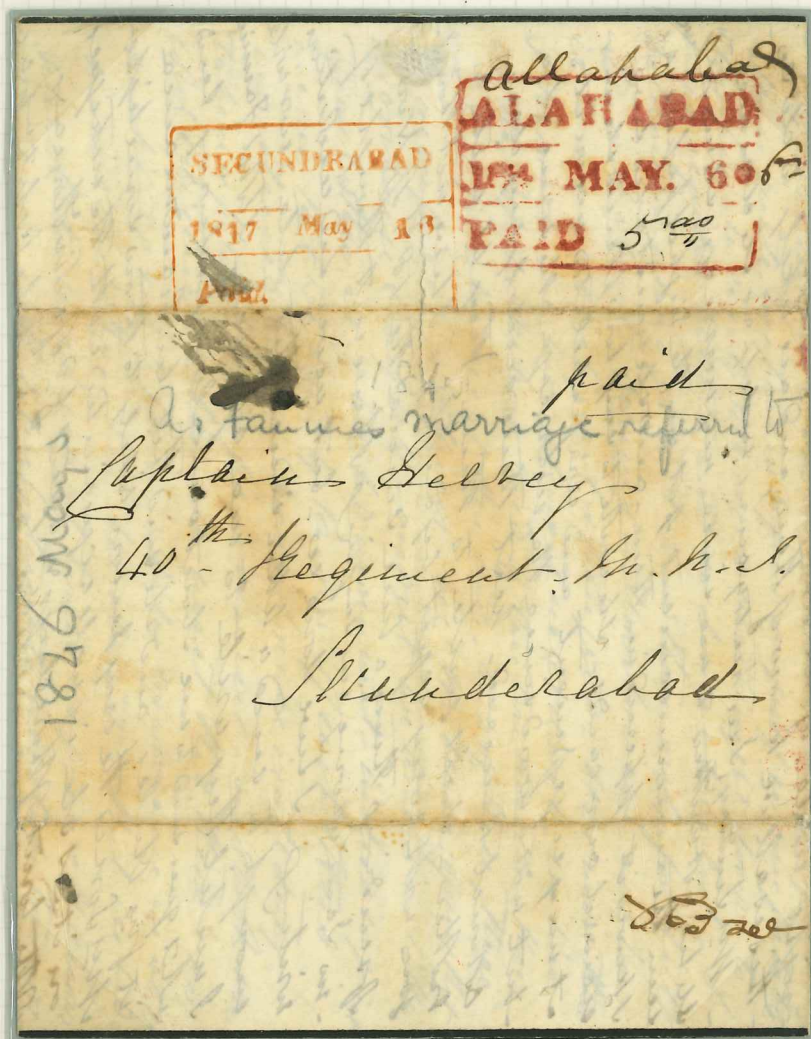 Allahabad
ALAHABAD
184 MAY. 6
PAID 5 ao
SECUNDRABAD
1847 May 13
Paid.
184
paid
As Fannies marriage referred to
Captain Hervey
40th Regiment. M. N. I.
Secunderabad
1846 May